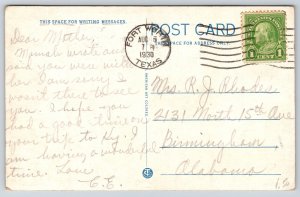 THIS SPACE FOR WRITING MESSAGES
POST CARD
THIS SPACE FOR ADDRESS ONLY
FORT WORTH
AUG 5
7 PM
1930
TEXAS
1 CENT 1
Dear Mother,
Munsh wrote and
said you were with
her I am sorry I
wasn't there to see
you. I hope you
had a good time on
your trip to Ky. I
am having a wonderful
time. Love
C. E.
Mrs. R. J. Rhodes
2131 North 15th Ave
Birmingham
Alabama
1.50